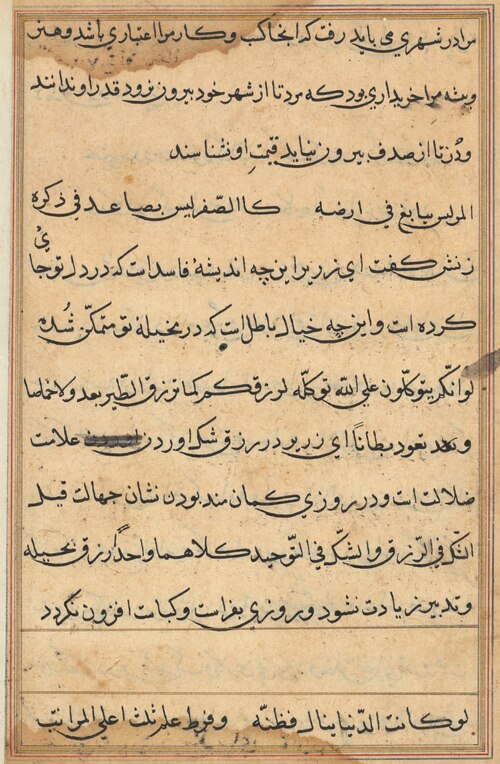 مرا در شهری می باید رفت که انجا کسب و کار مرا اعتباری باشد و هنر
و پیشه مرا خریداری بود که مرد تا از شهر خود بیرون نرود قدر او ندانند
و دُر تا از صدف بیرون نیاید قیمتِ او نشناسند
المر لیس ببالغ فی ارضه کا الصّقر لیس بصاعد فی ذکره
زنش کفت ای زریر این چه اندیشهٔ فاسد است که در دل تو جای
کرده است و این چه خیال باطل است که در مخیلهٔ تو متمکّن شُده
لو انّکم یتوکّلون علی اللّه توکّله لرزقکم کما ترزق الطّیر بعد و لا خماصا
و تعود بطاناً ای زریر در رزق شک اوردن علامت
ضلالت است و در روزی کمان مند بودن نشان جهالت قیل
الشّک فی الرّزق و الشّک فی التّوحید کلاهما واحدٌ رزق بحیله
و تدبیر زیادت نشود و روزی بفراست و کیاست افزون نکردد
لو کانت الدّنیا ینال فظنّه و فرط علم ثلث اعلی المراتبِ